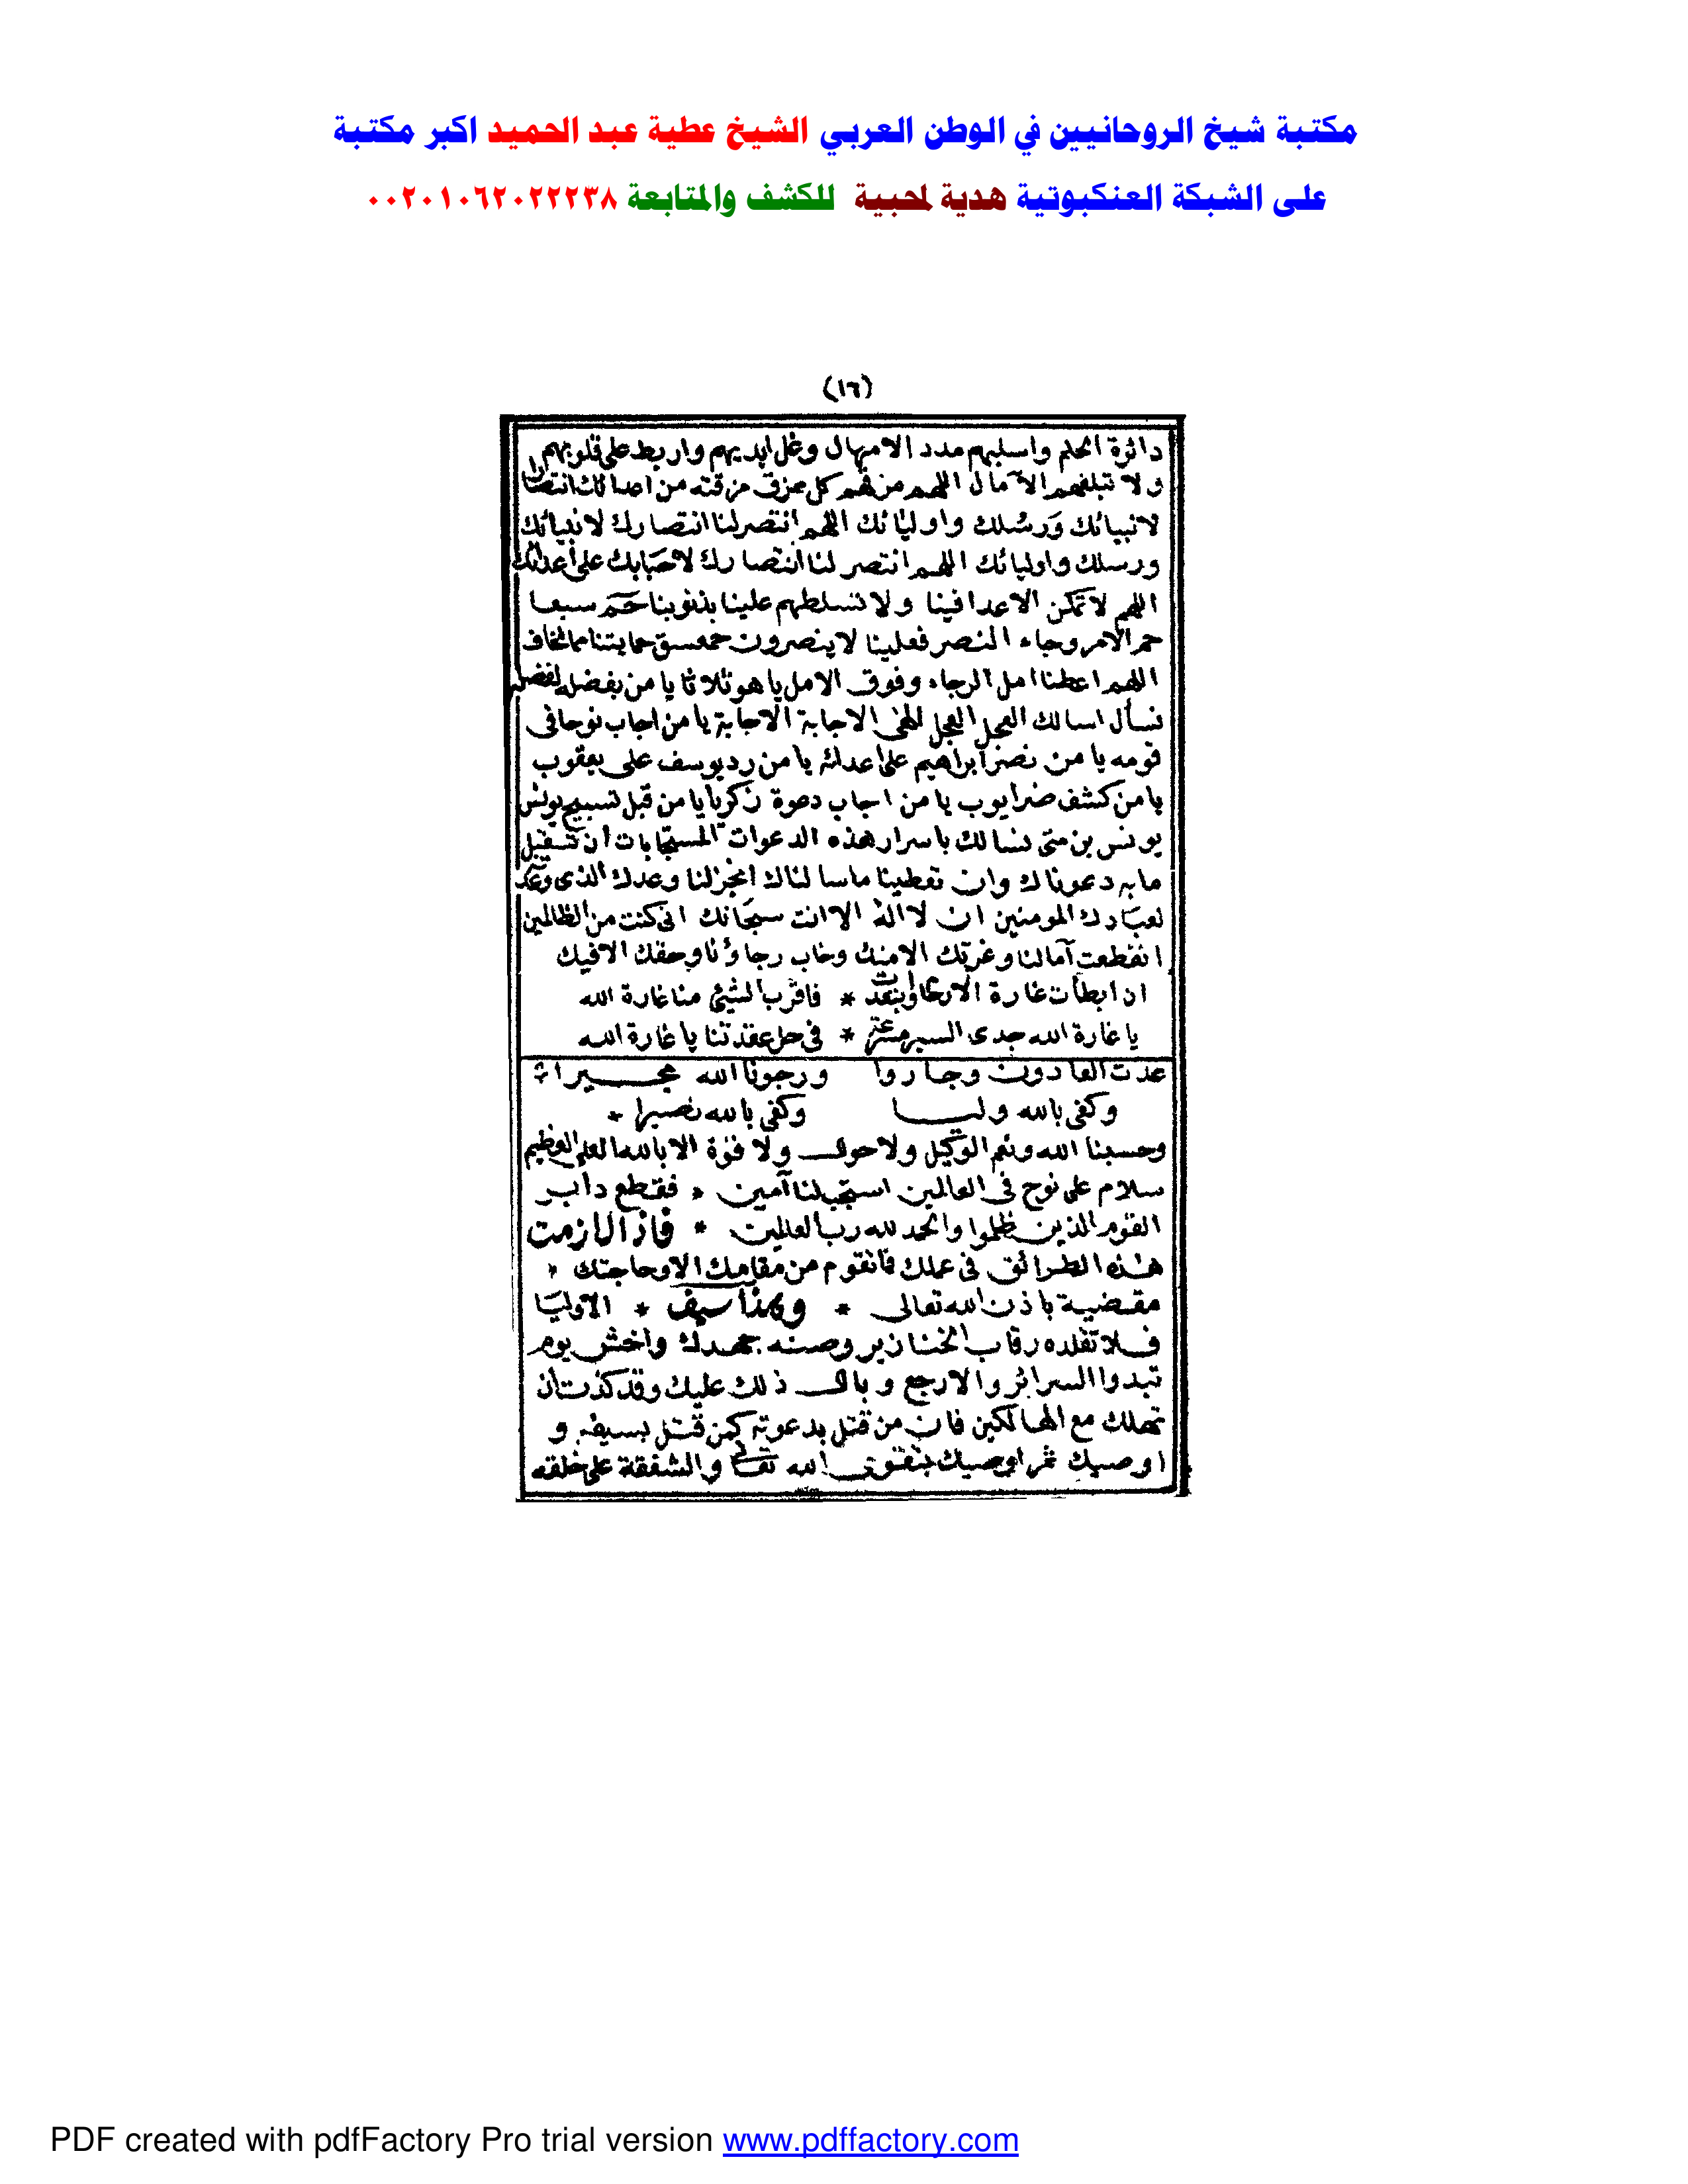 مكتبة شيخ الروحانيين في الوطن العربي الشيخ عطية عبد الحميد اكبر مكتبة
على الشبكة العنكبوتية هدية لمحبية للكشف والمتابعة ٠٠٢٠١٠٦٢٠٢٢٢٣٨
(١٦)
دائرة الحلم واسلبهم مدد الامهال وغل ايديهم واربط على قلوبهم
ولا تبلغهم الآمال اللهم مزقهم كل ممزق مزقته من اعدائك انتصارا
لانبيائك ورسلك واوليائك اللهم انتصر لنا انتصارك لانبيائك
ورسلك واوليائك اللهم انتصر لنا انتصارك لاحبابك على أعدائك
اللهم لا تمكن الاعدا فينا ولا تسلطهم علينا بذنوبنا حم سبعا
حم الامر وجاء النصر فعلينا لا ينصرون حمعسق حمايتنا مما نخاف
اللهم اعطنا امل الرجاء وفوق الامل يا هو ثلاثا يا من بفضله لفضله
نسأل اسالك العجل العجل الهى الاجابة الاجابة يا من اجاب نوحا فى
قومه يا من نصر ابراهيم على اعدائه يا من رد يوسف على يعقوب
يا من كشف ضر ايوب يا من اجاب دعوة زكريا يا من قبل تسبيح يونس
يونس بن متى نسالك باسرار هذه الدعوات المستجابات أن تتقبل
ما به دعوناك وان تعطينا ما سالناك انجز لنا وعدك الذى وعد
لعبادك المومنين ان لا اله الا انت سبحانك انى كنت من الظالمين
انقطعت آمالنا وعزتك الا منك وخاب رجاؤنا وحقك الا فيك
ان ابطأت غارة الارحام وابتعدت * فاقرب الشيئ منا غارة الله
يا غارة الله جدى السير مسرعة * فى حل عقدتنا يا غارة الله
عدت العادون وجاروا ورجونا الله مجيرا
وكفى بالله وليا وكفى بالله نصيرا *
وحسبنا الله ونعم الوكيل ولا حول ولا قوة الا بالله العلى العظيم
سلام على نوح فى العالمين استجب لنا آمين * فقطع دابر
القوم الذين ظلموا والحمد لله رب العالمين * فاذا لازمت
هذه الطرائق فى عملك فما تقوم من مقامك الا وحاجتك *
مقضية باذن الله تعالى * وهذا سيف * الاوليا
فلا تقلده رقاب الخنازير وصنه جهدك واخش يوم
تبدوا السرائر والا رجع وبال ذلك عليك وقد كدت أن
تهلك مع الهالكين فان من قتل بدعوته كمن قتل بسيفه و
اوصيك ثم اوصيك بتقوى الله تعالى والشفقة على خلقه
PDF created with pdfFactory Pro trial version www.pdffactory.com